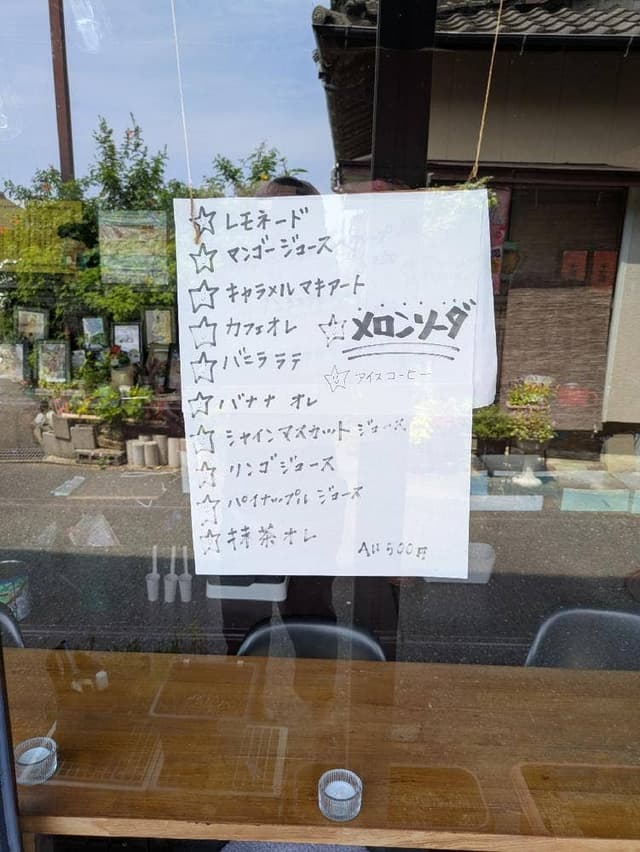 ☆レモネード
☆マンゴージュース
☆キャラメルマキアート
☆カフェオレ
☆メロンソーダ
☆バニララテ
☆アイスコーヒー
☆バナナオレ
☆シャインマスカットジュース
☆リンゴジュース
☆パイナップルジュース
☆抹茶オレ
All 500円